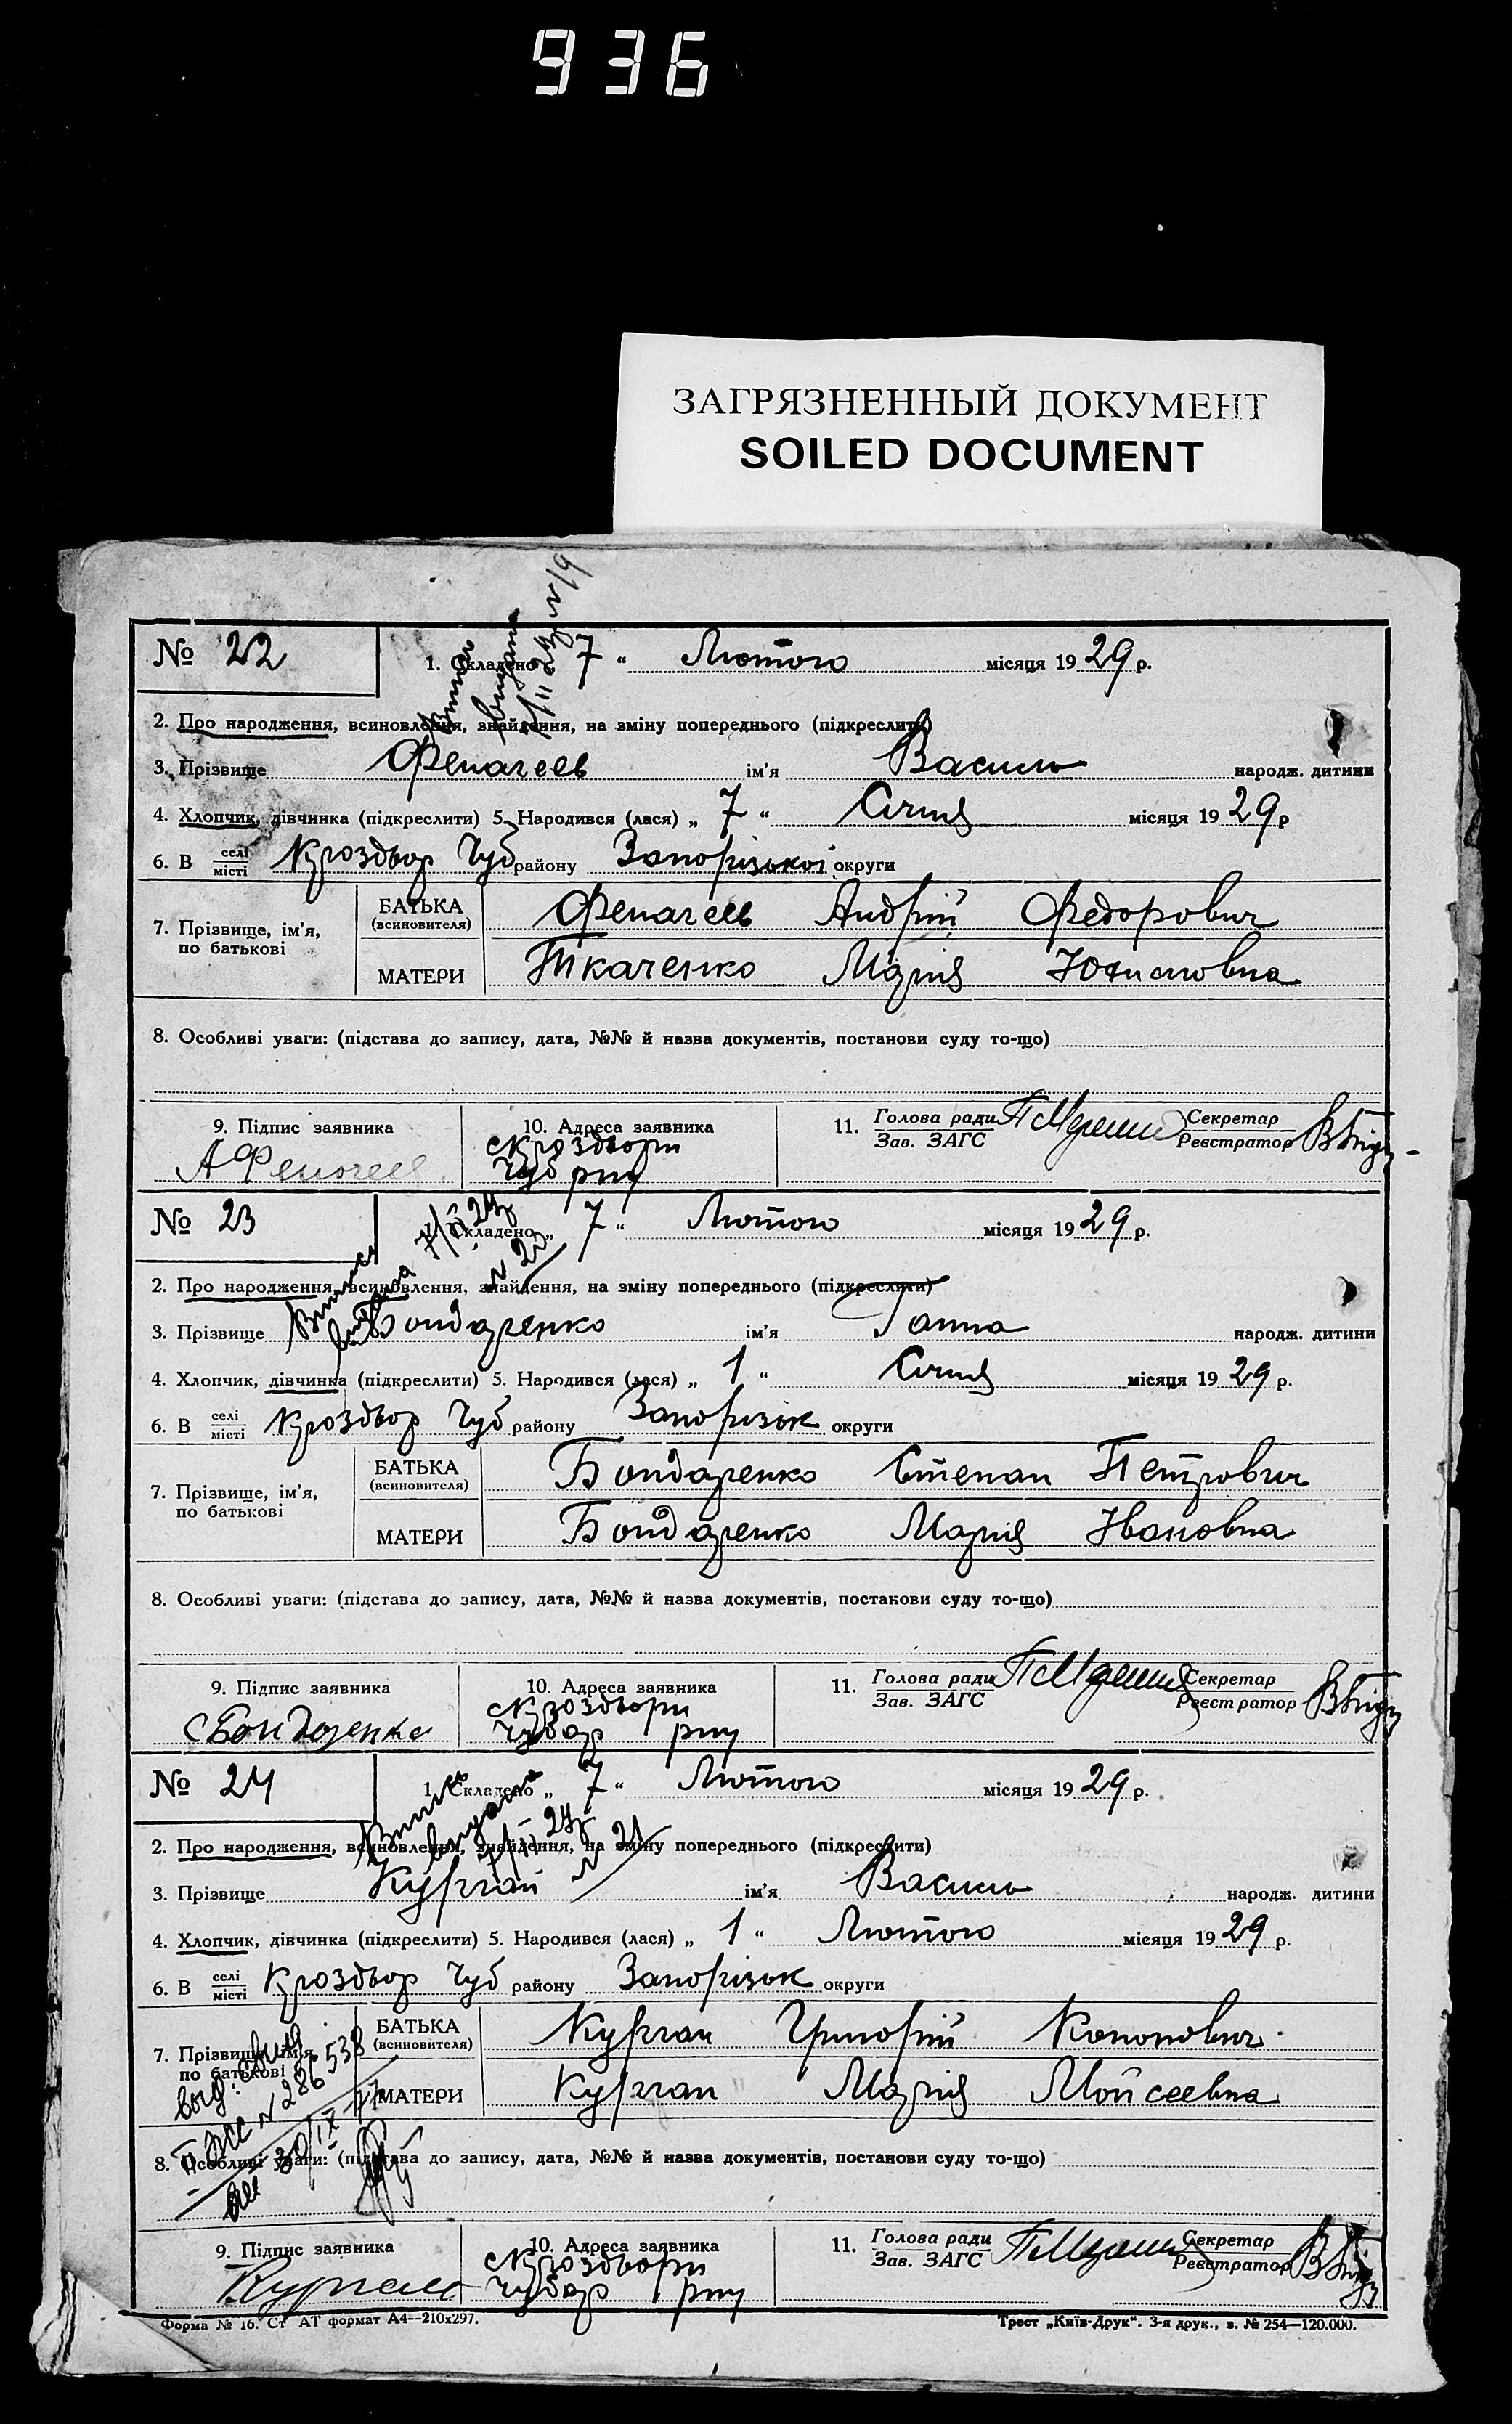 936
ЗАГРЯЗНЕННЫЙ ДОКУМЕНТ
SOILED DOCUMENT
№ 22
1. Складено „ 7 “ Лютого місяця 1929 р.
2. Про народження, всиновлення, знайдення, на зміну попереднього (підкреслити)
3. Прізвище ім'я Василь народж. дитини
4. Хлопчик, дівчинка (підкреслити) 5. Народився (лася) „ 7 “ Січня місяця 1929 р
6. В селі місті Кроздвор Чуб району Запорізької округи
7. Прізвище, ім'я, по батькові
БАТЬКА (всиновителя) Андрій Федорович
МАТЕРИ Ткаченко Марія
8. Особливі уваги: (підстава до запису, дата, №№ й назва документів, постанови суду то-що)
9. Підпис заявника
10. Адреса заявника
Чуб рну
11. Голова ради Зав. ЗАГС
Секретар Реєстратор
№ 23
1. Складено „ 7 “ Лютого місяця 1929 р.
Випись видана 7/II 29р № 20
2. Про народження, всиновлення, знайдення, на зміну попереднього (підкреслити)
3. Прізвище Бондаренко ім'я Ганна народж. дитини
4. Хлопчик, дівчинка (підкреслити) 5. Народився (лася) „ 1 “ Січня місяця 1929 р.
6. В селі місті Кроздвор Чуб району Запорізьк округи
7. Прізвище, ім'я, по батькові
БАТЬКА (всиновителя) Бондаренко Степан Петрович
МАТЕРИ Бондаренко Марія Івановна
8. Особливі уваги: (підстава до запису, дата, №№ й назва документів, постанови суду то-що)
9. Підпис заявника
10. Адреса заявника
С Бондаренко
Чубар рну
11. Голова ради Зав. ЗАГС
Секретар Реєстратор
№ 24
1. Складено „ 7 “ Лютого місяця 1929 р.
Випись видана 7/II 29р № 21
2. Про народження, всиновлення, знайдення, на зміну попереднього (підкреслити)
3. Прізвище Курган ім'я Василь народж. дитини
4. Хлопчик, дівчинка (підкреслити) 5. Народився (лася) „ 1 “ Лютого місяця 1929 р.
6. В селі місті Кроздвор Чуб району Запорізьк округи
7. Прізвище, ім'я, по батькові
БАТЬКА (всиновителя) Курган Григорій Кононович
МАТЕРИ Курган Марія Мойсеевна
№ 286538
8. Особливі уваги: (підстава до запису, дата, №№ й назва документів, постанови суду то-що)
9. Підпис заявника
10. Адреса заявника
Курган
Чубар рну
11. Голова ради Зав. ЗАГС
Секретар Реєстратор
Форма № 16. Ст АТ формат А4—210х297.
Трест „Київ-Друк“. 3-я друк., з. № 254—120.000.